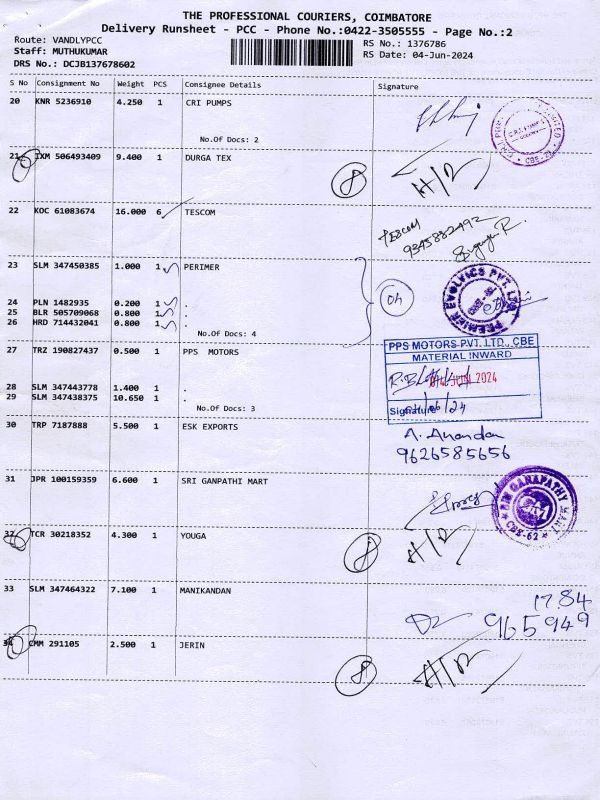 THE PROFESSIONAL COURIERS, COIMBATORE
Delivery Runsheet - PCC - Phone No.:0422-3505555 - Page No.:2
Route: VANDLYPCC
Staff: MUTHUKUMAR
DRS No.: DCJB137678602
RS No.: 1376786
RS Date: 04-Jun-2024
S No Consignment No Weight PCS Consignee Details Signature
20 KNR 5236910 4.250 1 CRI PUMPS
No.Of Docs: 2
CBE-
21 IXM 506493409 9.400 1 DURGA TEX
8 A/R
22 KOC 61083674 16.000 6 TESCOM
TESCOM
9345882492
23 SLM 347450385 1.000 1 PERIMER
24 PLN 1482935 0.200 1 .
25 BLR 505709068 0.800 1 .
26 HRD 714432041 0.800 1 .
No.Of Docs: 4
04
PREMIER EVOLVICS PVT. LTD.
27 TRZ 190827437 0.500 1 PPS MOTORS
28 SLM 347443778 1.400 1 .
29 SLM 347438375 10.650 1 .
No.Of Docs: 3
PPS MOTORS PVT. LTD., CBE
MATERIAL INWARD
JUN 2024
Signature
04/06/24
30 TRP 7187888 5.500 1 ESK EXPORTS
A. Anandan
9626585656
31 JPR 100159359 6.600 1 SRI GANPATHI MART
SRI GANAPATHY MART
CBE-62
32 TCR 30218352 4.300 1 YOUGA
8 A/R
33 SLM 347464322 7.100 1 MANIKANDAN
1784
965949
34 CMM 291105 2.500 1 JERIN
8 A/R